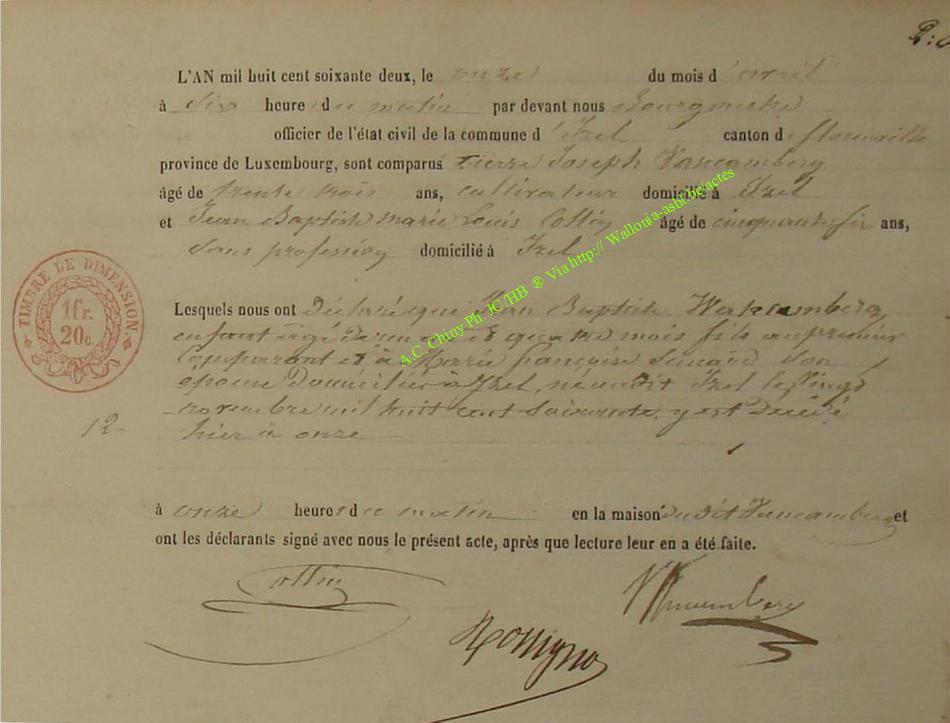 L'AN mil huit cent soixante deux, le onze du mois d'avril
à six heures du matin par devant nous Bourgmestre
officier de l'état civil de la commune d'Izel canton de florenville
province de Luxembourg, sont comparus Pierre Joseph Vancamberg
âgé de trente trois ans, cultivateur domicilié à Izel
et Jean Baptiste marie Louis Collin âgé de cinquante six ans,
sans profession domicilié à Izel
Lesquels nous ont Déclaré que Jean Baptiste Vancamberg
enfant agé de un an et quatre mois fils au premier
Comparant et à Marie françoise son
épouse Domiciliés à Izel, né audit Izel le Vingt
novembre mil huit cent Soixante, y est décédé
hier à onze
à onze heures du matin en la maison dudit Vancamberg et
ont les déclarants signé avec nous le présent acte, après que lecture leur en a été faite.
Collin
Vancamberg
TIMBRE DE DIMENSION
1fr.
20c.
12-
A.C. Chiny Ph. JC/HB ® Via http:// Wallonia-asbl.be/actes